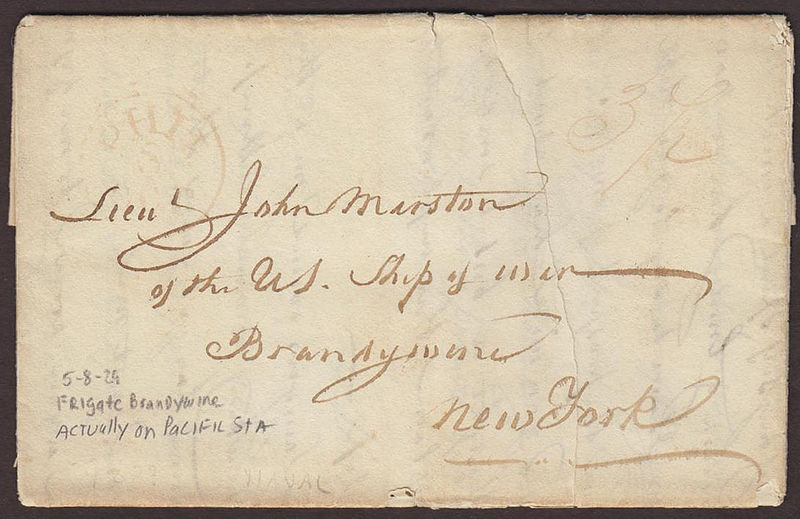 Lieut John Marston
of the US. Ship of war
Brandywine
New York
5-8-29
FRIgate Brandywine
ACTUAlly on PACIFIC StA
NAVAL